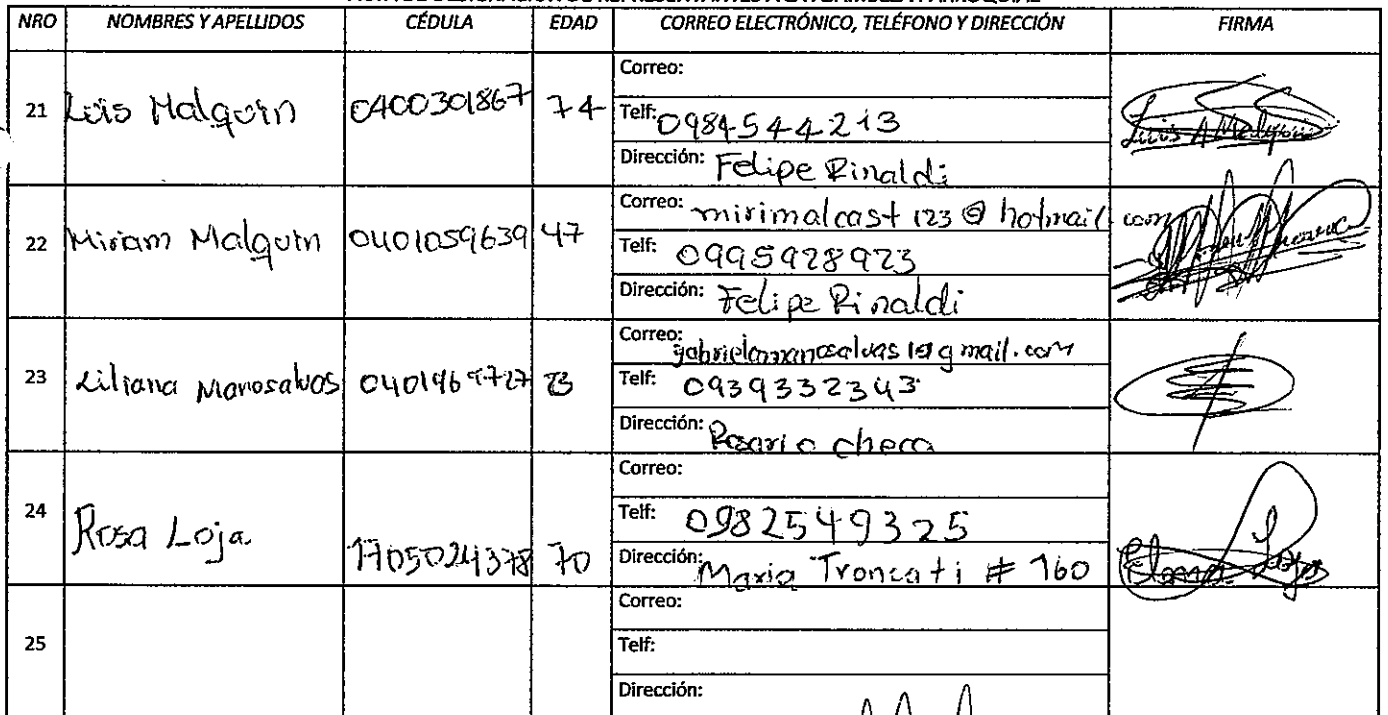 NRO NOMBRES Y APELLIDOS CÉDULA EDAD CORREO ELECTRÓNICO, TELÉFONO Y DIRECCIÓN FIRMA
21 Luis Malquin 0400301867 74
Correo:
Telf: 0984544213
Dirección: Felipe Rinaldi
Luis A Malquin
22 Miriam Malquin 0401059639 47
Correo: mirimalcast123@hotmail.com
Telf: 0995928923
Dirección: Felipe Rinaldi
23 Liliana Manosalvas
Correo:
Telf: 0939332343
Dirección: Rosario checa
24 Rosa Loja 1705024378 70
Correo:
Telf: 0982549325
Dirección: Maria Troncati # 160
25
Correo:
Telf:
Dirección: